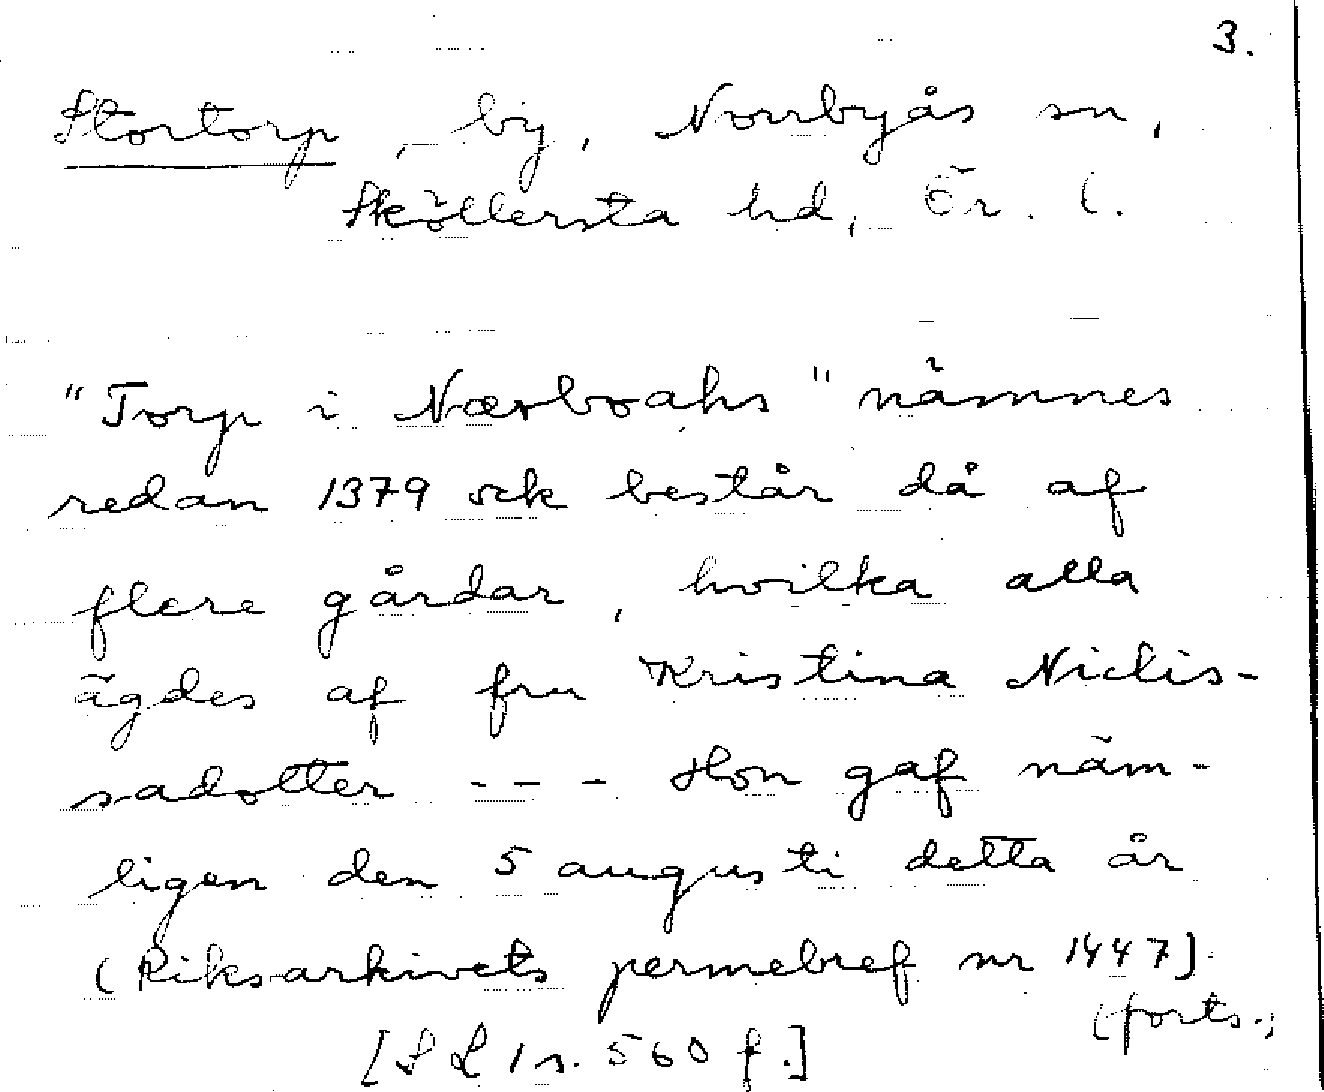 3.
Stortorp, by, Norrbyås sn,
Sköllersta hd, Ör. l.
"Torp i Nærboahs" nämnes
redan 1379 ock består då af
flere gårdar, hvilka alla
ägdes af fru Kristina Niclis-
sadotter --- Hon gaf näm-
ligen den 5 augusti detta år
(Riksarkivets permebref nr 1447).
(forts.)
[SL 1 s. 560 f.]